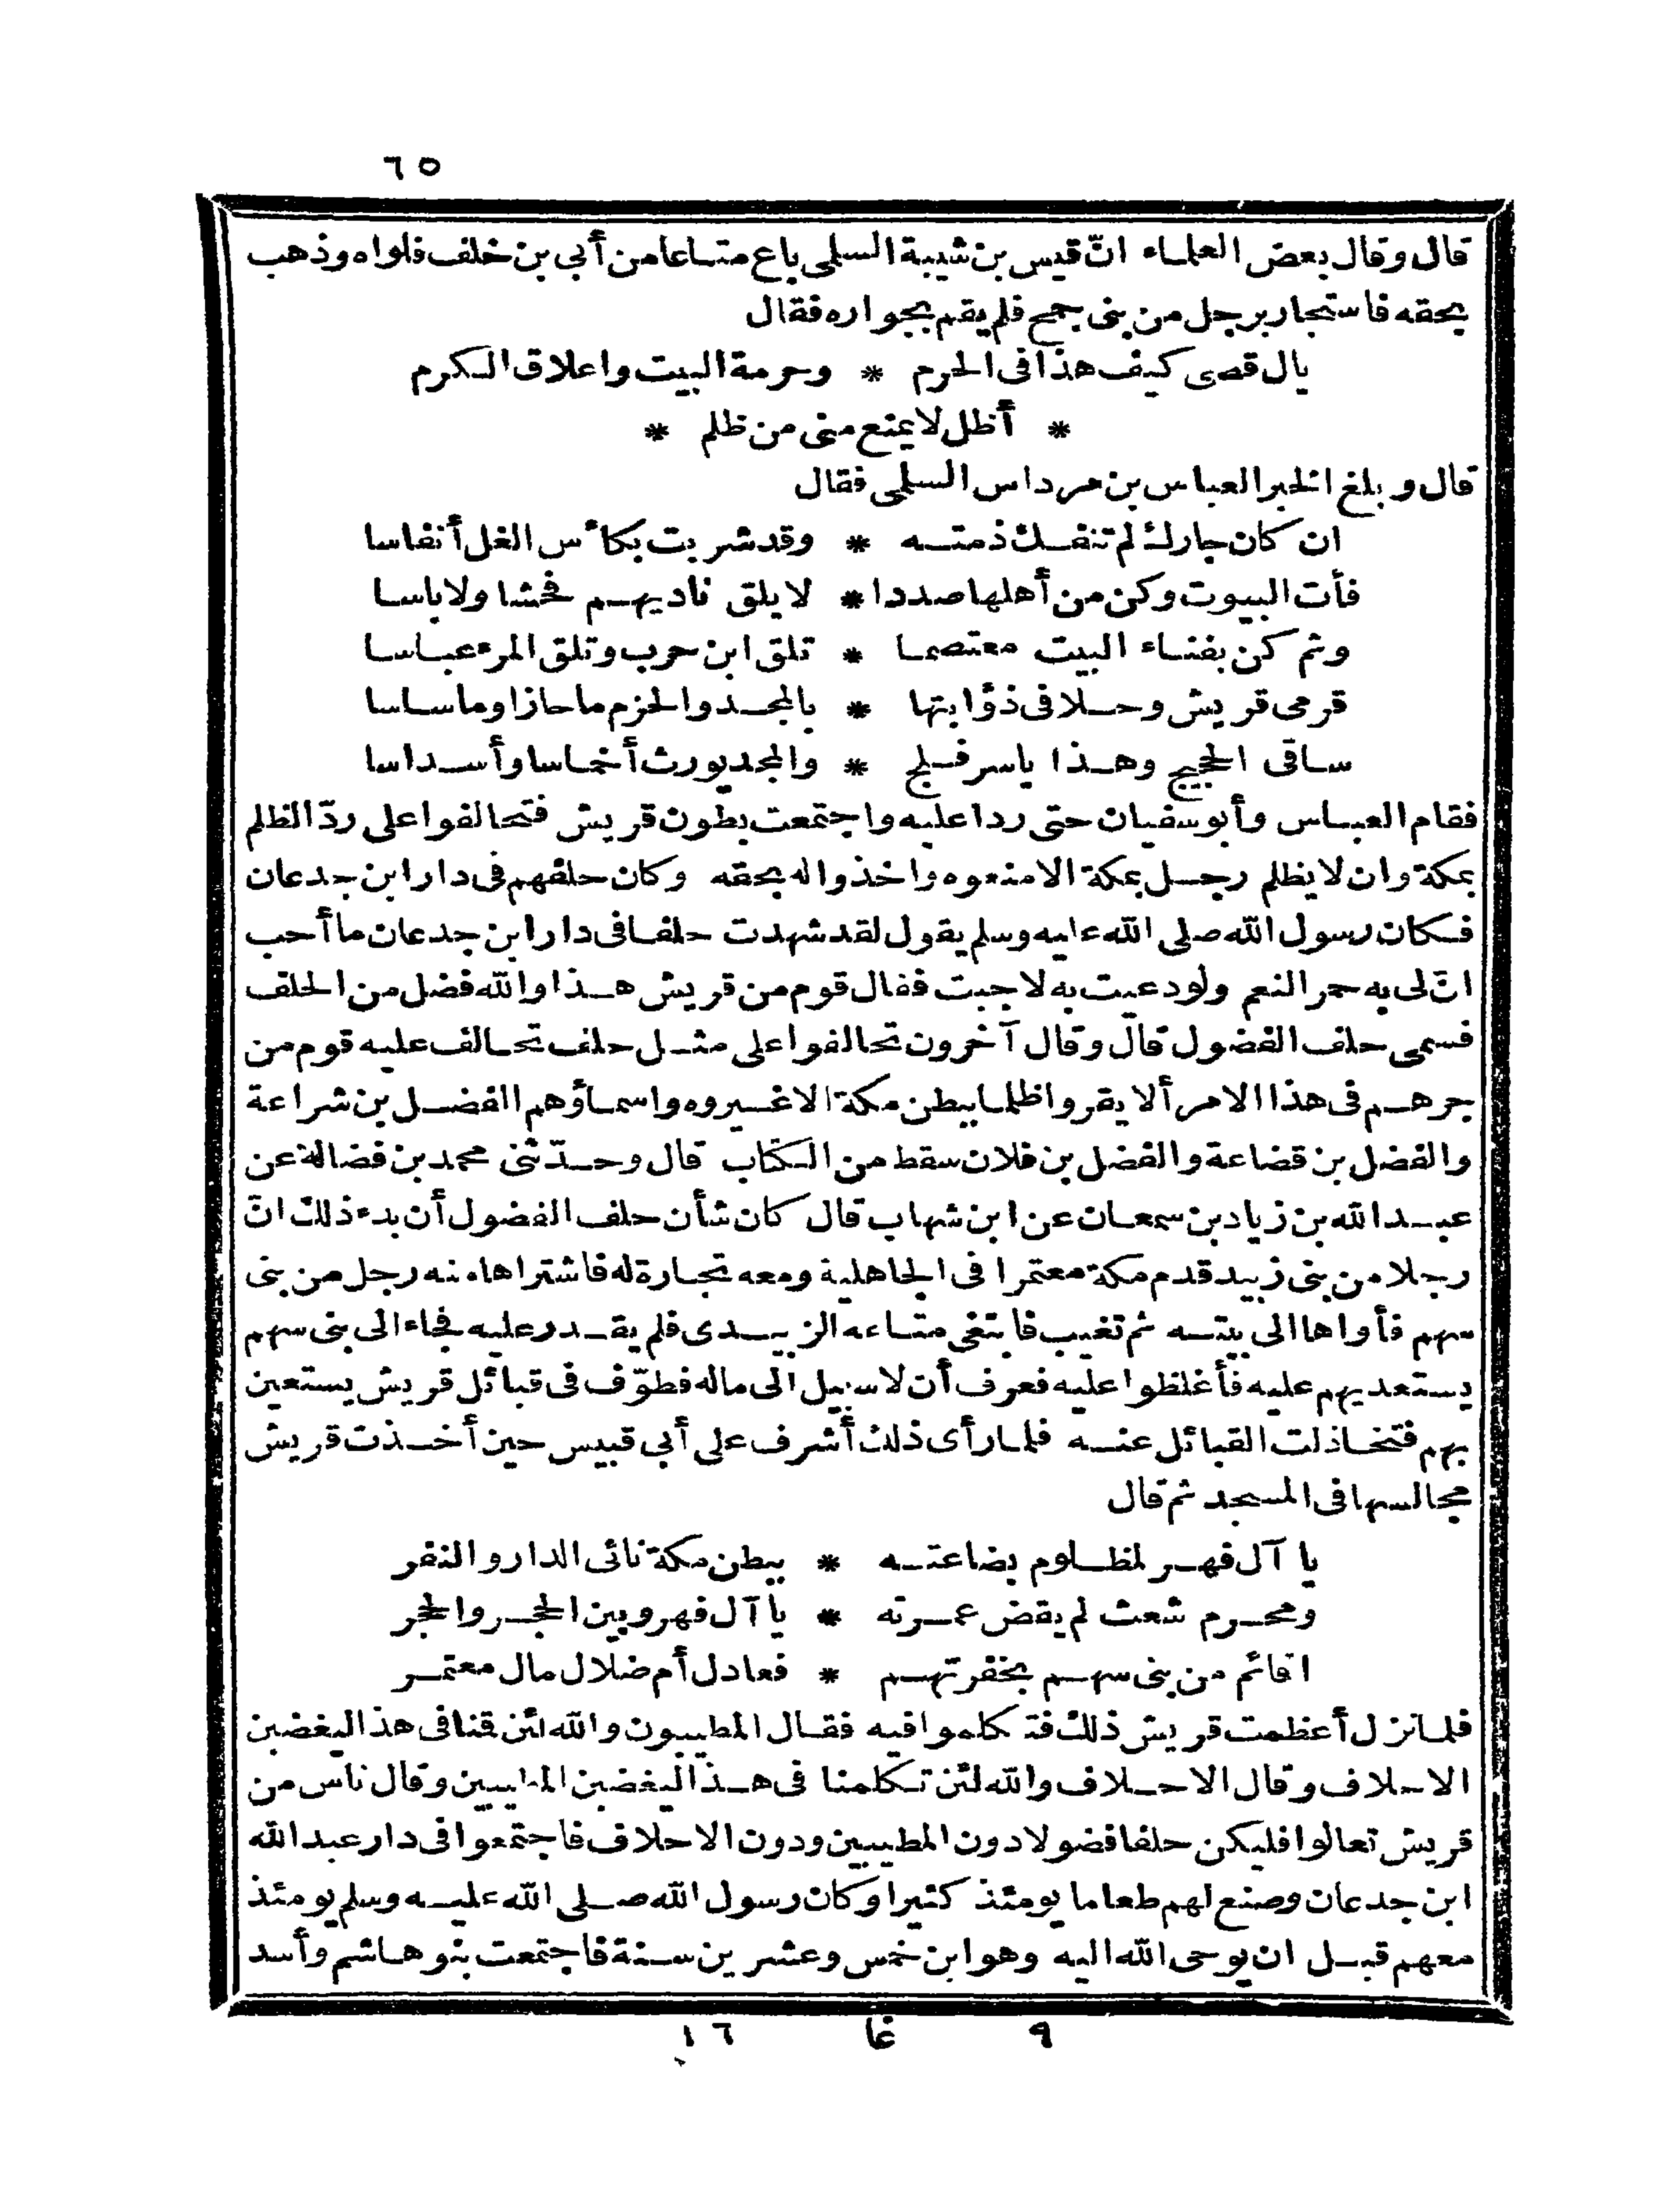 ٦٥
قال وقال بعض العلماء انّ قيس بن شيبة السلمى باع متاعا من أبي بن خلف فلواه وذهب
بحقه فاستجار برجل من بنى جمح فلم يقم بجواره فقال
يال قصى كيف هذا فى الحرم * وحرمة البيت واعلاق الكرم
* أظل لا يمنع منى من ظلم *
قال وبلغ الخبر العباس بن مرداس السلمى فقال
ان كان جارك لم تنفعك ذمته * وقد شربت بكأس الغل أنفاسا
فأت البيوت وكن من أهلها صددا * لا يلق ناديهم فحشا ولا باسا
وثم كن بفناء البيت معتصما * تلق ابن حرب وتلق المرء عباسا
قرمى قريش وحلا فى ذؤابتها * بالمجد والحزم ما حازا وما ساسا
ساقى الحجيج وهذا ياسر فلج * والمجد يورث أخماسا وأسداسا
فقام العباس وأبو سفيان حتى ردا عليه واجتمعت بطون قريش فتحالفوا على ردّ الظلم
بمكة وان لا يظلم رجل بمكة الا منعوه واخذوا له بحقه وكان حلفهم فى دار ابن جدعان
فكان رسول الله صلى الله عليه وسلم يقول لقد شهدت حلفا فى دار ابن جدعان ما أحب
انّ لى به حمر النعم ولو دعيت به لاجبت فقال قوم من قريش هذا والله فضل من الحلف
فسمى حلف الفضول قال وقال آخرون تحالفوا على مثل حلف تحالف عليه قوم من
جرهم فى هذا الامر ألا يقروا ظلما ببطن مكة الا غيروه واسماؤهم الفضل بن شراعة
والفضل بن قضاعة والفضل بن فلان سقط من الكتاب قال وحدّثنى محمد بن فضالة عن
عبد الله بن زياد بن سمعان عن ابن شهاب قال كان شأن حلف الفضول أن بدء ذلك انّ
رجلا من بنى زبيد قدم مكة معتمرا فى الجاهلية ومعه تجارة له فاشتراها منه رجل من بنى
سهم فأواها الى بيته ثم تغيب فابتغى متاعه الزبيدى فلم يقدر عليه فجاء الى بنى سهم
يستعديهم عليه فأغلظوا عليه فعرف أن لا سبيل الى ماله فطوّف فى قبائل قريش يستعين
بهم فتخاذلت القبائل عنه فلما رأى ذلك أشرف على أبي قبيس حين أخذت قريش
مجالسها فى المسجد ثم قال
يا آل فهر لمظلوم بضاعته * ببطن مكة نائى الدار والنفر
ومحرم شعث لم يقض عمرته * يا آل فهر وبين الحجر والحجر
اقائم من بنى سهم بخفرتهم * فعادل أم ضلال مال معتمر
فلما نزل أعظمت قريش ذلك فتكلموا فيه فقال المطيبون والله لئن قمنا فى هذا ليغضبن
الاحلاف وقال الاحلاف والله لئن تكلمنا فى هذا ليغضبن المطيبين وقال ناس من
قريش تعالوا فليكن حلفا فضولا دون المطيبين ودون الاحلاف فاجتمعوا فى دار عبد الله
ابن جدعان وصنع لهم طعاما يومئذ كثيرا وكان رسول الله صلى الله عليه وسلم يومئذ
معهم قبل ان يوحى الله اليه وهو ابن خمس وعشرين سنة فاجتمعت بنو هاشم وأسد
٩ غا ١٦